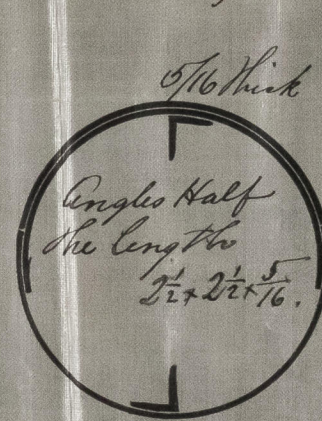 5/16 thick
Angles Half
the length
2½ × 2½ × 5/16.